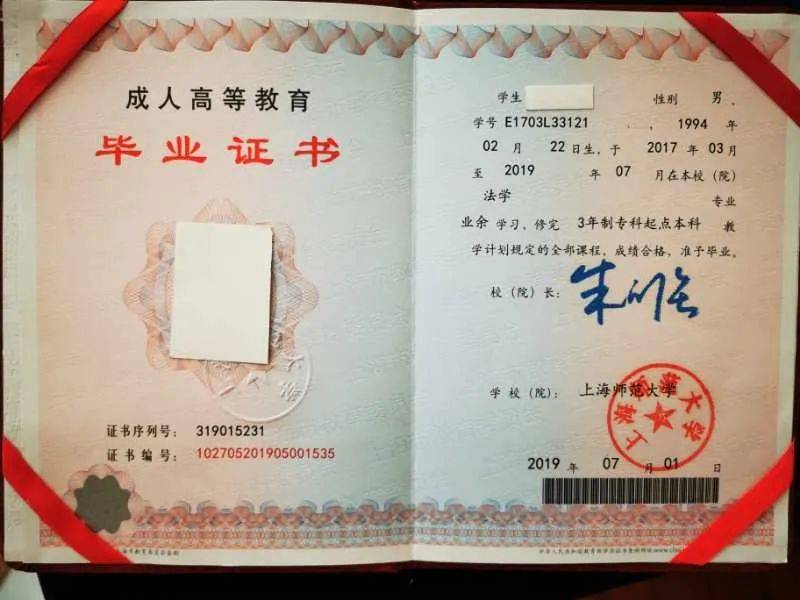 成人高等教育
毕业证书
证书序列号：319015231
证书编号：102705201905001535
学生 性别 男，
学号 E1703L33121 ，1994 年
02 月 22 日生，于 2017 年 03 月
至 2019 年 07 月在本校（院）
法学 专业
业余 学习，修完 3年制专科起点本科 教
学计划规定的全部课程，成绩合格，准予毕业。
校（院）长：
学校（院）： 上海师范大学
上海师范大学
2019 年 07 月 01 日